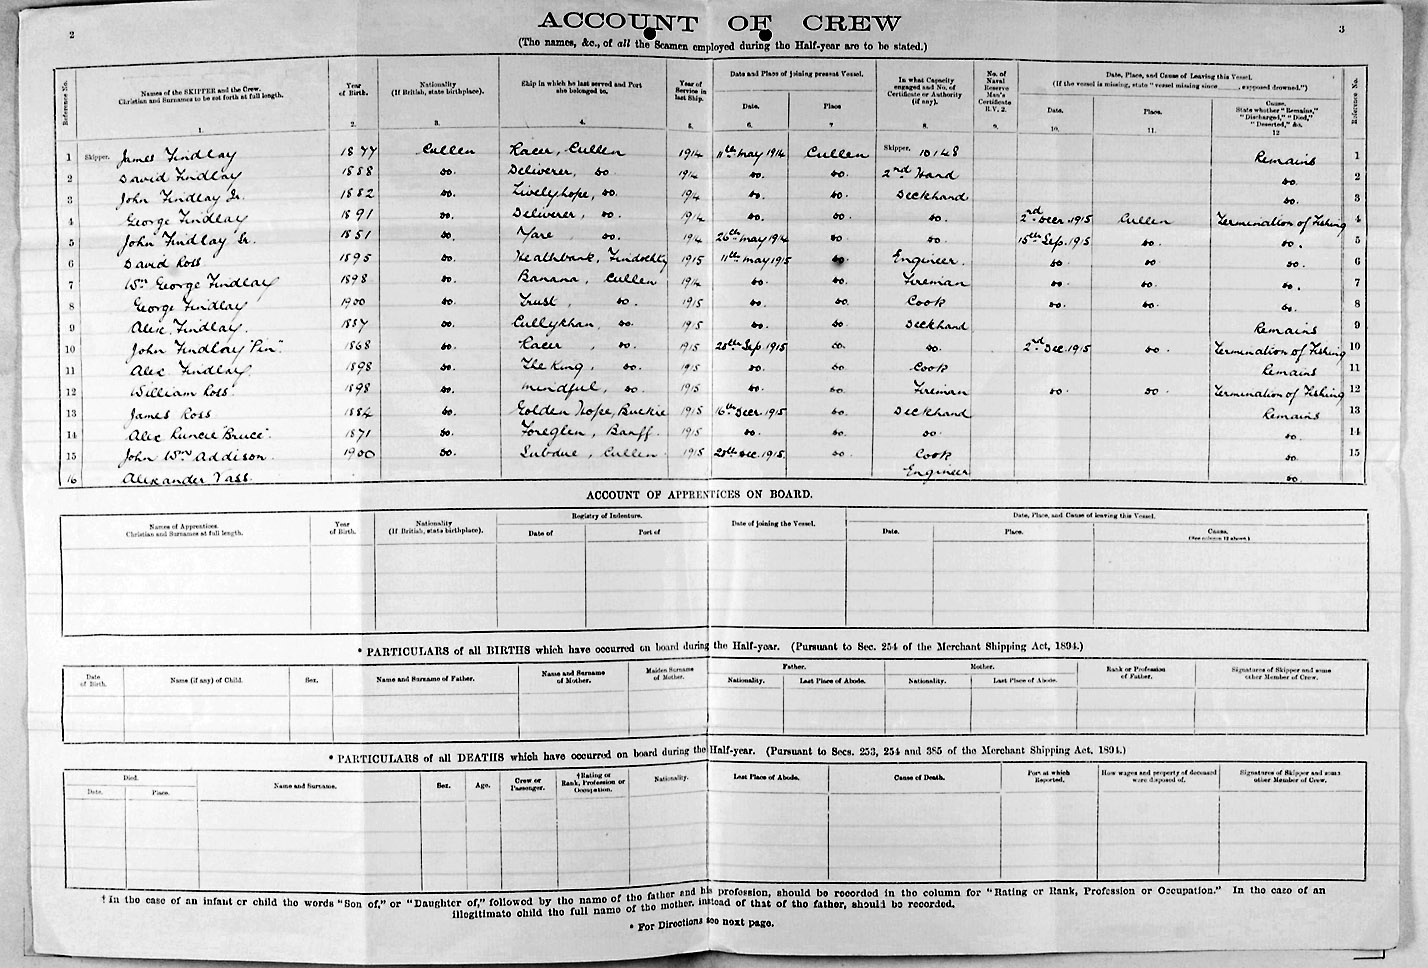 2
ACCOUNT OF CREW
3
(The names, &c., of all the Seamen employed during the Half-year are to be stated.)
Reference No. | Names of the SKIPPER and the Crew. Christian and Surnames to be set forth at full length. | Year of Birth. | Nationality (If British, state birthplace). | Ship in which he last served and Port she belonged to. | Year of Service in last Ship. | Date and Place of Joining present Vessel. | In what Capacity engaged and No. of Certificate or Authority (if any). | No. of Naval Reserve Man's Certificate R.V. 2. | Date, Place, and Cause of Leaving this Vessel. (If the vessel is missing, state "vessel missing since ____, supposed drowned.") | Reference No.
Date. | Place | Date. | Place. | Cause. State whether "Remains," "Discharged," "Died," "Deserted," &c.
1. | 2. | 3. | 4. | 5. | 6. | 7 | 8. | 9. | 10. | 11. | 12
1 Skipper. James Findlay 1877 Cullen Racer, Cullen 1914 11th May 1914 Cullen Skipper, 10148 Remains 1
2 David Findlay 1888 do. Deliverer, do 1914 do. do. 2nd Hand do. 2
3 John Findlay Jr. 1882 do. Livelyhope, do. 1914 do. do. Deckhand do. 3
4 George Findlay 1891 do. Deliverer, do. 1914 do. do. do. 2nd Decr. 1915 Cullen Termination of Fishing 4
5 John Findlay Sr. 1851 do. Yare, do. 1914 26th May 1914 do. do. 15th Sep. 1915 do. do. 5
6 David Ross 1895 do. Heathbank, Findochty 1915 11th May 1915 do. Engineer. do. do do. 6
7 Wm George Findlay 1898 do. Banana, Cullen 1914 do. do. Fireman do. do. do. 7
8 George Findlay 1900 do. Trust, do. 1915 do. do. Cook do. do. do. 8
9 Alex. Findlay. 1887 do. Cullykhan, do. 1915 do. do Deckhand Remains 9
10 John Findlay "Pin". 1868 do. Racer, do. 1915 28th Sep. 1915 do. do. 2nd Dec. 1915 do. Termination of Fishing 10
11 Alex Findlay. 1898 do. The King, do. 1915 do. do. Cook Remains 11
12 William Ross 1898 do. Mindful, do. 1915 do. do. Fireman do. do. Termination of Fishing 12
13 James Ross 1884 do. Golden Hope, Buckie 1915 16th Decr. 1915 do. Deckhand Remains 13
14 Alex Runcie "Bruce". 1871 do. Foreglen, Banff. 1915 do. do. do. do. 14
15 John Wm Addison. 1900 do. Subdue, Cullen 1915 28th Dec. 1915. do. Cook do. 15
16 Alexander Vass. Engineer do.
ACCOUNT OF APPRENTICES ON BOARD.
Names of Apprentices. Christian and Surnames at full length. | Year of Birth. | Nationality (If British, state birthplace). | Registry of Indenture. | Date of joining the Vessel. | Date, Place, and Cause of leaving this Vessel.
Date of | Port of | Date. | Place. | Cause. (See column 12 above.)
* PARTICULARS of all BIRTHS which have occurred on board during the Half-year. (Pursuant to Sec. 254 of the Merchant Shipping Act, 1894.)
Date of Birth. | Name (if any) of Child. | Sex. | Name and Surname of Father. | Name and Surname of Mother. | Maiden Surname of Mother. | Father. | Mother. | Rank or Profession of Father. | Signatures of Skipper and some other Member of Crew.
Nationality. | Last Place of Abode. | Nationality. | Last Place of Abode.
* PARTICULARS of all DEATHS which have occurred on board during the Half-year. (Pursuant to Secs. 253, 254 and 385 of the Merchant Shipping Act, 1894.)
Died. | Name and Surname. | Sex. | Age. | Crew or Passenger. | †Rating or Rank, Profession or Occupation. | Nationality. | Last Place of Abode. | Cause of Death. | Port at which Reported. | How wages and property of deceased were disposed of. | Signatures of Skipper and some other Member of Crew.
Date. | Place.
† In the case of an infant or child the words "Son of," or "Daughter of," followed by the name of the father and his profession, should be recorded in the column for "Rating or Rank, Profession or Occupation." In the case of an
illegitimate child the full name of the mother, instead of that of the father, should be recorded.
* For Directions see next page.